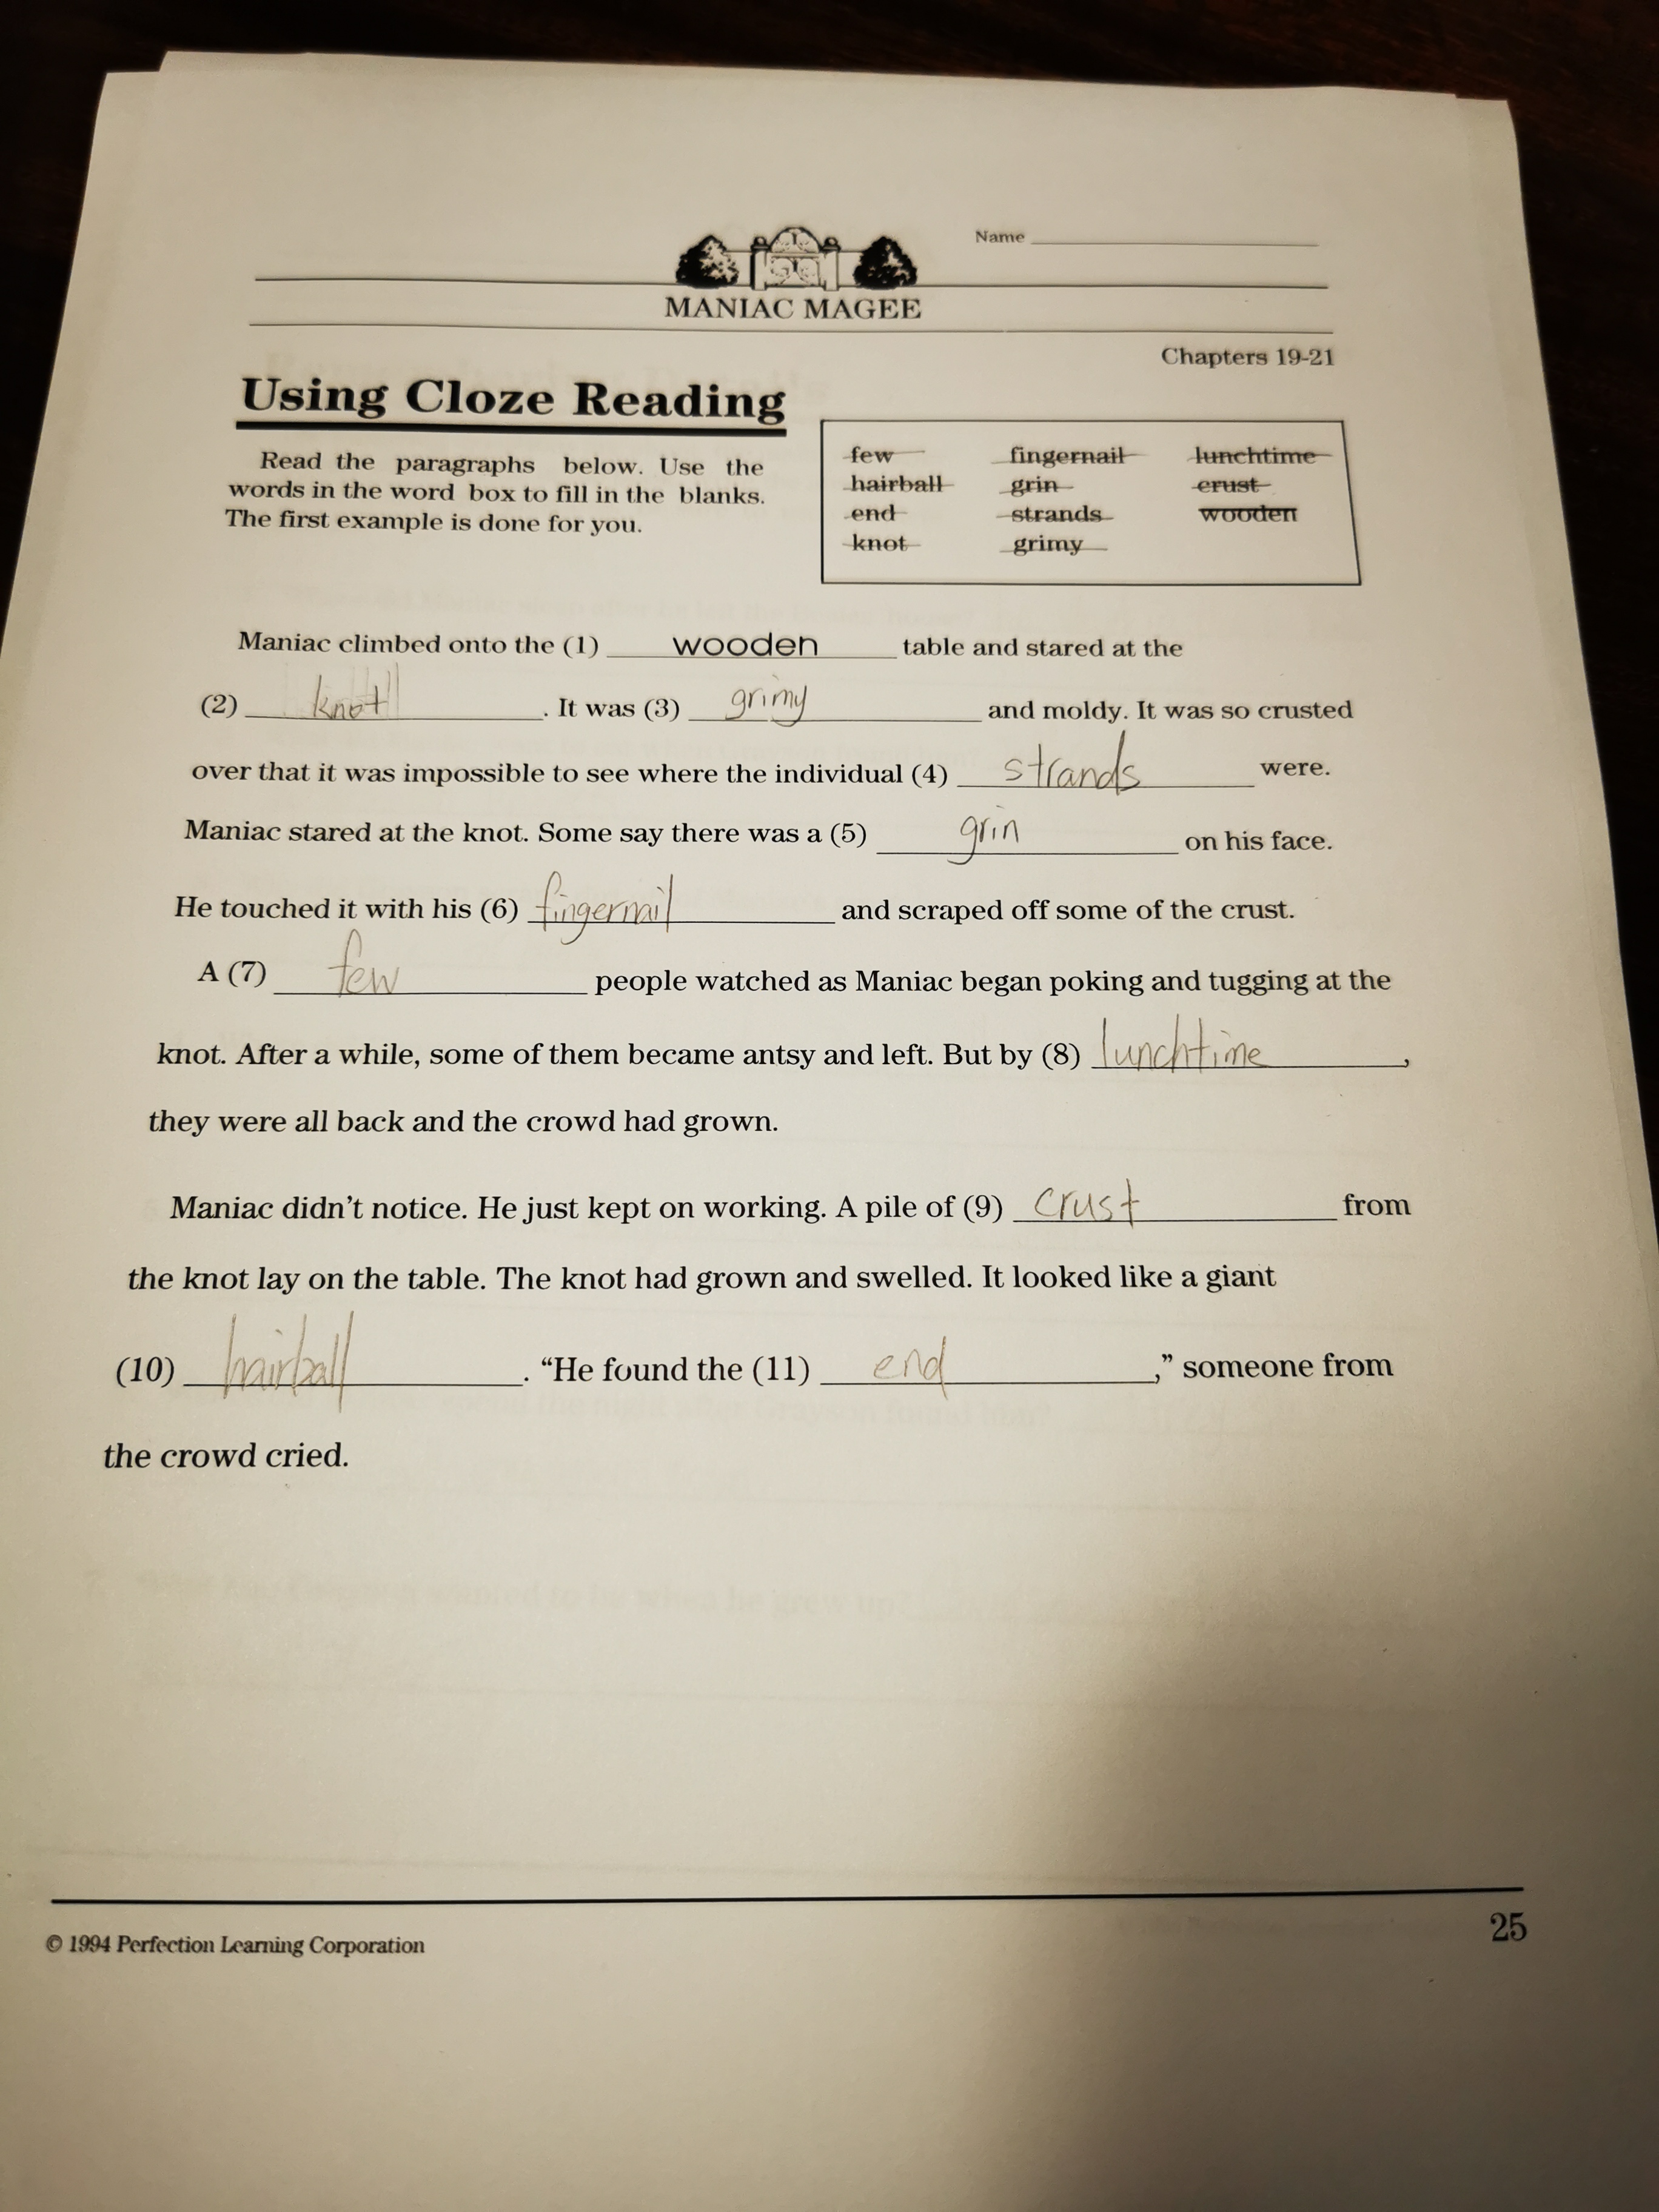 Name
MANIAC MAGEE
Chapters 19-21
Using Cloze Reading
Read the paragraphs below. Use the
words in the word box to fill in the blanks.
The first example is done for you.
few fingernail lunchtime
hairball grin crust
end strands wooden
knot grimy
Maniac climbed onto the (1) wooden table and stared at the
(2) knot. It was (3) grimy and moldy. It was so crusted
over that it was impossible to see where the individual (4) strands were.
Maniac stared at the knot. Some say there was a (5) grin on his face.
He touched it with his (6) fingernail and scraped off some of the crust.
A (7) few people watched as Maniac began poking and tugging at the
knot. After a while, some of them became antsy and left. But by (8) lunchtime,
they were all back and the crowd had grown.
Maniac didn't notice. He just kept on working. A pile of (9) crust from
the knot lay on the table. The knot had grown and swelled. It looked like a giant
(10) hairball. “He found the (11) end,” someone from
the crowd cried.
© 1994 Perfection Learning Corporation
25